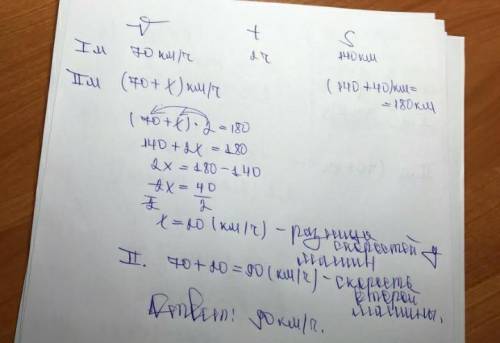 V t S
I м 70 км/ч 2ч 140км
II м (70+x) км/ч (140+40)км=
=180км
(70+x)·2=180
140+2x=180
2x=180-140
2x=40
2 2
x=20(км/ч) - разница
скоростей у
машин
II. 70+20=90(км/ч) - скорость
второй
машины.
Ответ: 90км/ч.